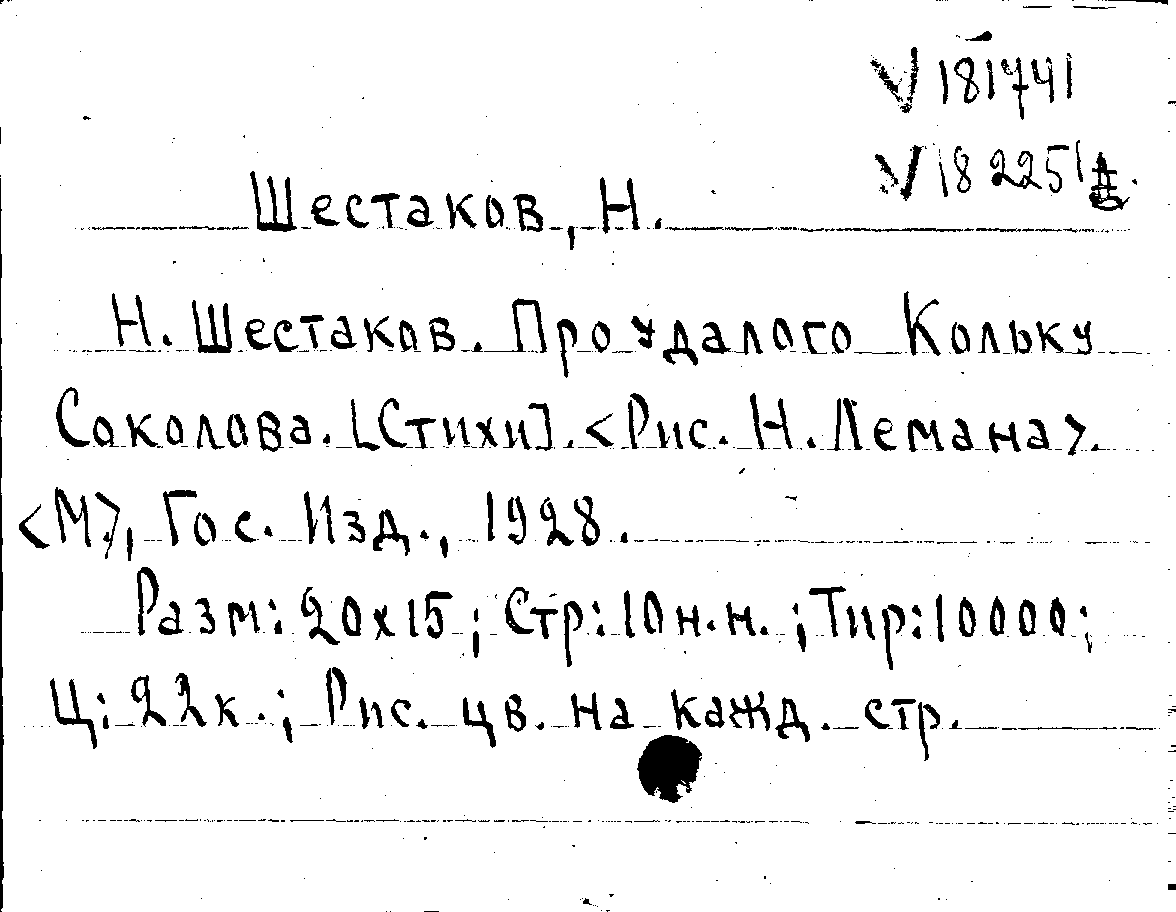 V 181741
V 182251
Шестаков, Н.
Н. Шестаков. Про удалого Кольку
Соколова. [Стихи]. <Рис. Н. Лемана>.
<М>, Гос. Изд., 1928.
Разм: 20х15; Стр: 10 н.н.; Тир: 10000;
Ц: 22к.; Рис. цв. на кажд. стр.